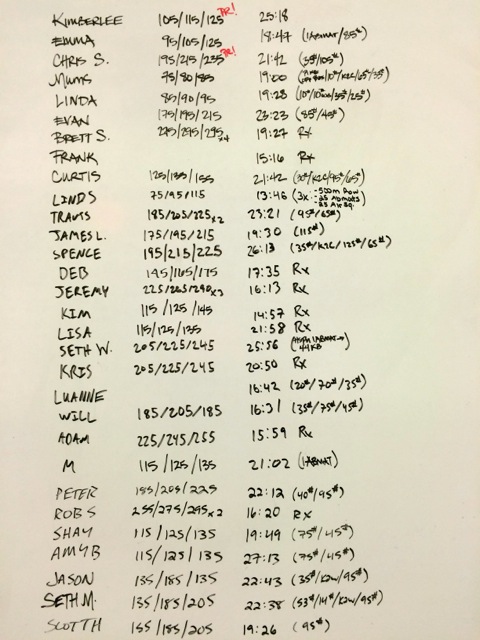 KIMBERLEE 105/115/125 PR! 25:18
EMMA 95/105/125 18:47 (1ABMAT/85#)
CHRIS S. 195/215/235 PR! 21:42 (35#/105#)
MUMS 75/80/85 19:00
LINDA 85/90/95 19:28
EVAN 175/195/215 23:23 (85#/45#)
BRETT S. 275/295/295x4 19:27 Rx
FRANK 15:16 Rx
CURTIS 125/135/155 21:42 (30#/K2C/95#/65#)
LINDS 75/95/115 13:46 (3x -500m Row
TRAVIS 185/205/225x2 23:21 (95#/65#)
JAMES L. 175/195/215 19:30 (115#)
SPENCE 195/215/225 26:13 (35#/K2C/125#/65#)
DEB 145/165/175 17:35 Rx
JEREMY 225/265/290x3 16:13 Rx
KIM 115/125/145 14:57 Rx
LISA 115/125/135 21:58 Rx
SETH W. 205/225/245 25:56
KRIS 205/225/245 20:50 Rx
LUANNE 16:42 (20#/70#/35#)
WILL 185/205/185 16:31 (35#/75#/45#)
ADAM 225/245/255 15:59 Rx
M 115/125/135 21:02 (1ABMAT)
PETER 185/205/225 22:12 (40#/95#)
ROB S 255/275/295x2 16:20 RX
SHAY 115/125/135 19:49 (75#/45#)
AMY B 115/125/135 27:13 (75#/45#)
JASON 135/185/135 22:43 (35#/K2W/95#)
SETH M. 135/185/205 22:38 (53#/14#/K2W/95#)
SCOTT H 155/185/205 19:26 (95#)